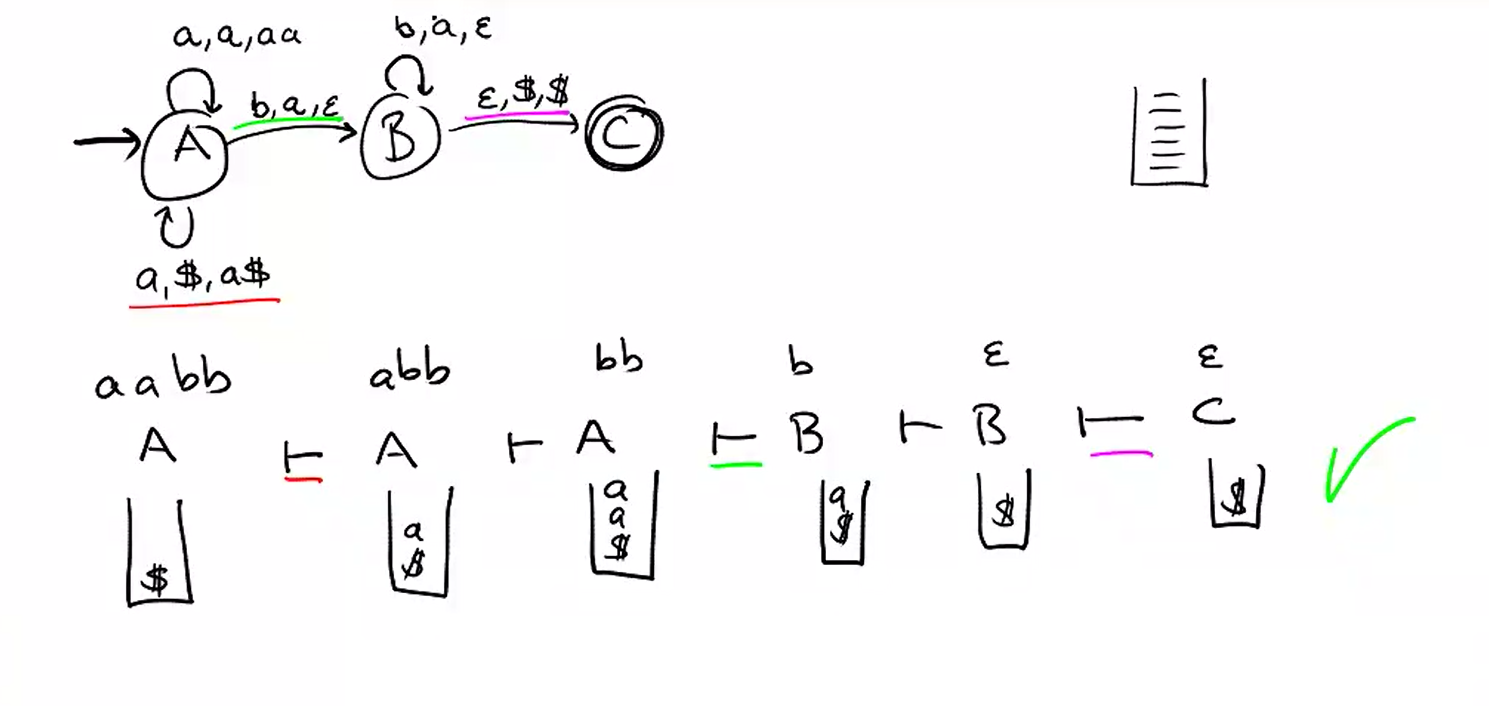 a, a, aa
b, a, ε
b, a, ε
ε, $, $
A
B
C
a, $, a$
aabb
abb
bb
b
ε
ε
A ⊢ A ⊢ A ⊢ B ⊢ B ⊢ C
$
a
$
a
a
$
a
$
$
$